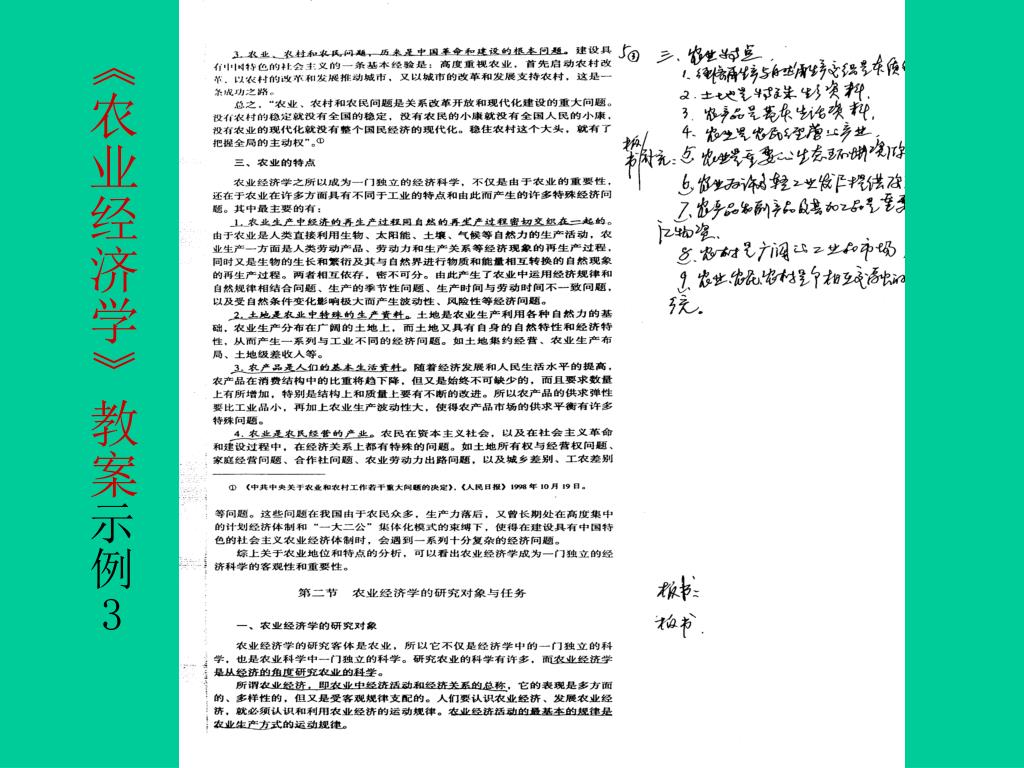 《农业经济学》教案示例3
3.农业、农村和农民问题，历来是中国革命和建设的根本问题。建设具
有中国特色的社会主义的一条基本经验是：高度重视农业，首先启动农村改
革，以农村的改革和发展推动城市，又以城市的改革和发展支持农村，这是一
条成功之路。
总之，“农业、农村和农民问题是关系改革开放和现代化建设的重大问题。
没有农村的稳定就没有全国的稳定，没有农民的小康就没有全国人民的小康，
没有农业的现代化就没有整个国民经济的现代化。稳住农村这个大头，就有了
把握全局的主动权”。①
三、农业的特点
农业经济学之所以成为一门独立的经济科学，不仅是由于农业的重要性，
还在于农业在许多方面具有不同于工业的特点和由此而产生的许多特殊经济问
题。其中最主要的有：
1.农业生产中经济的再生产过程同自然的再生产过程密切交织在一起的。
由于农业是人类直接利用生物、太阳能、土壤、气候等自然力的生产活动，农
业生产一方面是人类劳动产品、劳动力和生产关系等经济现象的再生产过程，
同时又是生物的生长和繁衍及其与自然界进行物质和能量相互转换的自然现象
的再生产过程。两者相互依存，密不可分。由此产生了农业中运用经济规律和
自然规律相结合问题、生产的季节性问题、生产时间与劳动时间不一致问题，
以及受自然条件变化影响极大而产生波动性、风险性等经济问题。
2.土地是农业中特殊的生产资料。土地是农业生产利用各种自然力的基
础，农业生产分布在广阔的土地上，而土地又具有自身的自然特性和经济特
性，从而产生一系列与工业不同的经济问题。如土地集约经营、农业生产布
局、土地级差收入等。
3.农产品是人们的基本生活资料。随着经济发展和人民生活水平的提高，
农产品在消费结构中的比重将趋下降，但又是始终不可缺少的，而且要求数量
上有所增加，特别是结构上和质量上要有不断的改进。所以农产品的供求弹性
要比工业品小，再加上农业生产波动性大，使得农产品市场的供求平衡有许多
特殊问题。
4.农业是农民经营的产业。农民在资本主义社会，以及在社会主义革命
和建设过程中，在经济关系上都有特殊的问题。如土地所有权与经营权问题、
家庭经营问题、合作社问题、农业劳动力出路问题，以及城乡差别、工农差别
①《中共中央关于农业和农村工作若干重大问题的决定》，《人民日报》1998年10月19日。
等问题。这些问题在我国由于农民众多，生产力落后，又曾长期处在高度集中
的计划经济体制和“一大二公”集体化模式的束缚下，使得在建设具有中国特
色的社会主义农业经济体制时，会遇到一系列十分复杂的经济问题。
综上关于农业地位和特点的分析，可以看出农业经济学成为一门独立的经
济科学的客观性和重要性。
第二节 农业经济学的研究对象与任务
一、农业经济学的研究对象
农业经济学的研究客体是农业，所以它不仅是经济学中的一门独立的科
学，也是农业科学中一门独立的科学。研究农业的科学有许多，而农业经济学
是从经济的角度研究农业的科学。
所谓农业经济，即农业中经济活动和经济关系的总称，它的表现是多方面
的、多样性的，但又是受客观规律支配的。人们要认识农业经济、发展农业经
济，就必须认识和利用农业经济的运动规律。农业经济活动的最基本的规律是
农业生产方式的运动规律。
三、农业的特点
1.经济再生产与自然再生产交织是本质
2.土地是特殊生产资料.
3.农产品是基本生活资料.
4.农业是农民经营的产业.
板书补充：5.农业是重要的生态环境资源
6.农业为许多轻工业发展提供原
7.农产品和副产品及其加工品是重要
汇物资.
8.农村是广阔的工业品市场
9.农业、农民、农村是个相互交流的
系统。
板书：
板书.